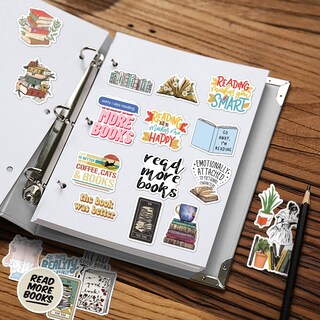 READING
makes you
SMART
sorry i was reading
MORE
BOOKS
READING
makes me
HAPPY
GO
AWAY,
I'M
READING
COFFEE, CATS
& BOOKS
read
more
books
EMOTIONALLY
ATTACHED
TO FICTIONAL
CHARACTERS
the book
was better
READ
MORE
BOOKS
REALITY